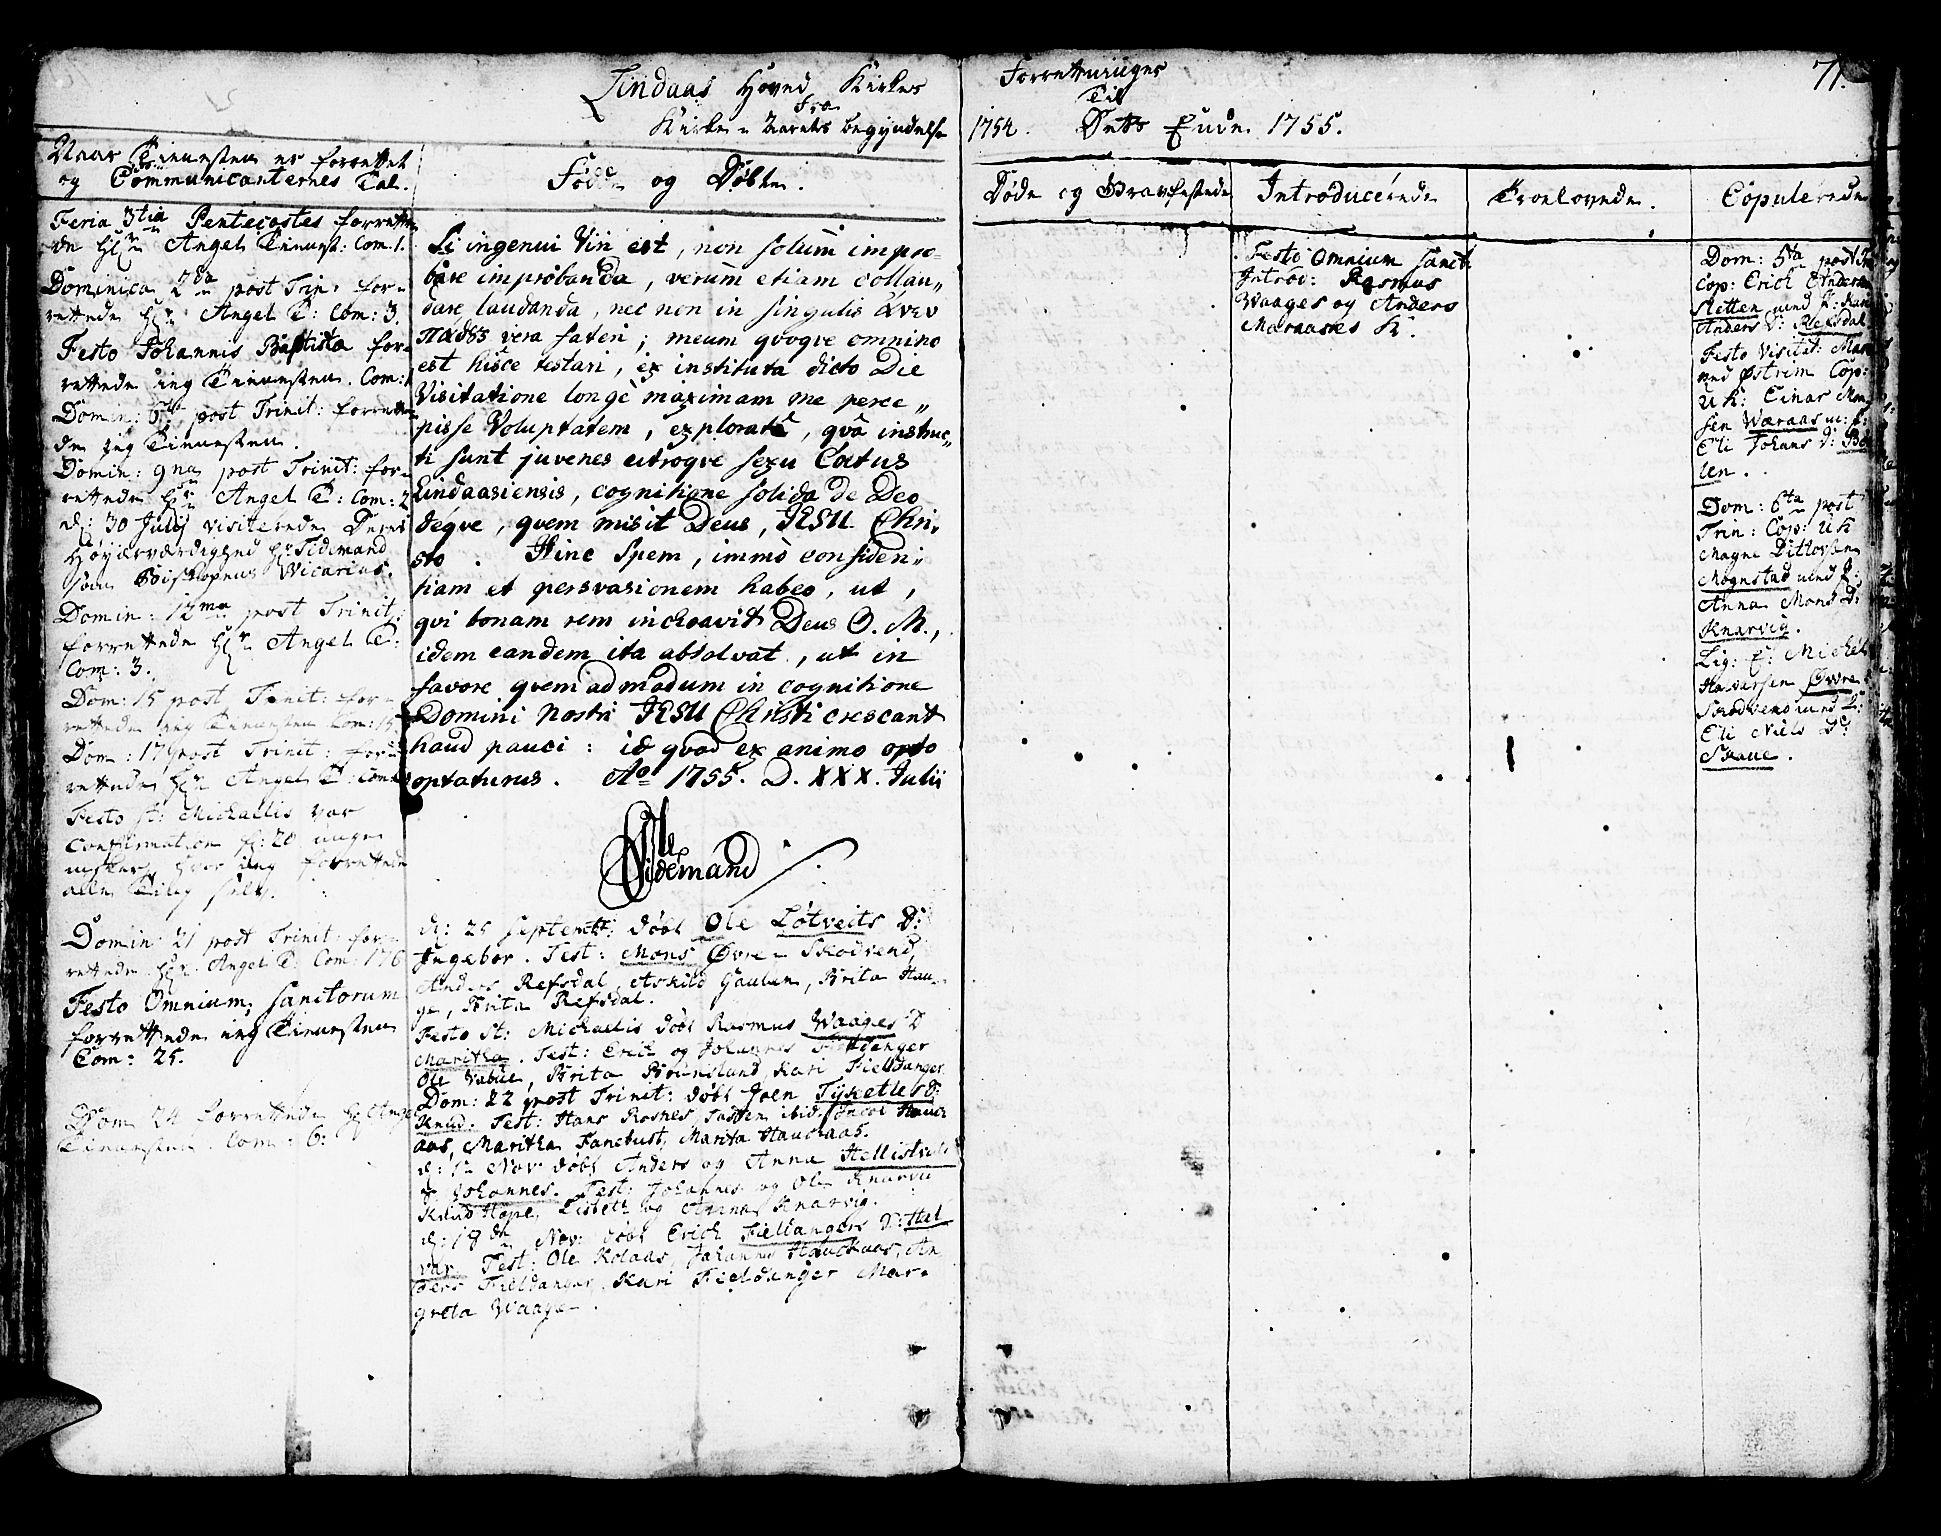 Lindaas Hoved Kirkes Forretninger
Fra Til
Kirke-Aarets begyndelse 1754. Dets Ende 1755.
71.
Naar Tienesten er forrettet
og Communicanternes Tal.
Feria 3tia Pentecostes forrette-
de Hr Angel Tienest: Com. 1.
Dominica 2da post Trin: for-
rettede Hr Angel T: Com: 3.
Festo Johannis Baptistæ for-
rettede ieg Tienesten. Com:
Domin: 6ta post Trinit: forrette-
de ieg Tienesten.
Domin: 9na post Trinit: for-
rettede Hr Angel T: Com: 2
d: 30 Julij visiterede Deres
Høyærværdighed Hr Tidemand
som Biskopens Vicarius.
Domin: 12ma post Trinit:
forrettede Hr Angel T:
Com: 3.
Dom: 15 post Trinit: for-
rettede ieg Tienesten Com: 15
Dom: 17 post Trinit: for-
rettede Hr Angel T: Com:
Festo St: Michaelis var
Confirmation f: 20 unge
msker, hvor ieg forrettede
alle Ting selv.
Domin: 21 post Trinit: for-
rettede Hr Angel T: Com: 176
Festo Omnium Sanctorum
forrettede ieg Tienesten
Com: 25.
Dom 24 forrettede Hr Angel
Tienesten. Com: 6:
Fødde og Døbte.
Si ingenui Viri est, non solum impro-
bare improbanda, verum etiam collau-
dare laudanda, nec non in singulis ἄνευ
πάθος vera fateri; meum qvoqve omnino
est hisce testari, ex instituta dicto Die
Visitatione longè maximam me perce-
pisse Voluptatem, exploratô, qvâ instruc-
ti sunt juvenes utroqve sexu Cœtus
Lindaasiensis, cognitione solida de Deo
deqve, qvem misit Deus, JESU Chri-
sto. Hinc Spem, immò confiden-
tiam et persvasionem habeo, ut,
qvi bonam rem inchoavit Deus O. M.,
idem eandem ita absolvat, ut in
favore qvemadmodum in cognitione
Domini Nostri JESU Christi crescant
haud pauci: id qvod ex animo opto
optaturus. Ao 1755. D. XXX. Julii
Ole
Tidemand
d: 25 Septembr: døbt Ole Løtveits D:
Ingebor. Test: Mons Øvre-Skodvend,
Anders Refsdal, Askild Gaulen, Brita Hau-
ge, Brita Refsdal.
Festo St: Michaelis døbt Rasmus Waages D
Maritha. Test: Erich og Johannes Fieldanger
Ole Vabüe, Brita Bruneland, Kari Fieldanger.
Dom: 22 post Trinit: døbt Joen Tyketlers D:
Knud. Test: Hans Rosnes, Tosten ibid. Jacob Hauck-
aas, Maritha Fanebust, Marita Hauckaas.
d: 1 Nov: døbt Anders og Anna Hellistveit
D Johannes. Test: Johannes og Ole Knarvig
Knud Hope, Lisbeth og Anna Knarvig.
d: 18de Nov: døbt Erich Fieldangers D: Hal
var. Test: Ole Kolaas, Johannes Hauckaas, An
ders Fieldanger, Kari Fieldanger Mar-
greta Waage.
Døde og Gravfestede
Introducerede
Festo Omnium Sanct:
Introd: Rasmus
Waages og Anders
Maraases K:
Troelovede.
Copulerede
Dom: 5ta post Tr
Cop: Erich Anders
Sletten med P: Kari
Anders D: Refsdal
Festo Visitat: Mar
ved Østrem Cop:
UK: Einar Mon
sen Wæraas m: P:
Eli Johans D: Bø
len.
Dom: 6ta post
Trin: Cop: UK
Magne Ditlovsen
Mognstad med P:
Anna Mons D:
Knarvig.
Lig: E: Michel
Halversen Øvre
Skodvend med P:
Eli Niels D:
Skaue.